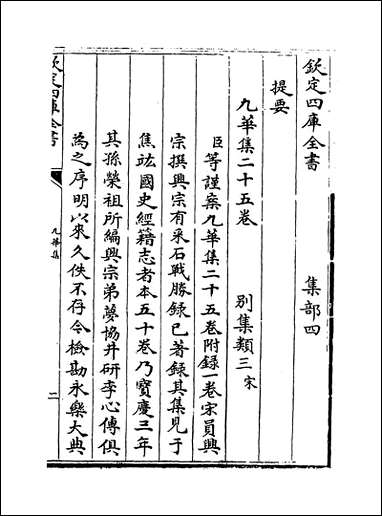 欽定四庫全書　集部四
提要
九華集二十五卷　別集類三宋
臣等謹案九華集二十五卷附錄一卷宋員興
宗撰興宗有采石戰勝錄已著錄其集見于
焦竑國史經籍志者本五十卷乃寳慶三年
其孫榮祖所編興宗弟夢協井研李心傳俱
為之序明以來久佚不存今檢勘永樂大典
欽定四庫全書
九華集
二